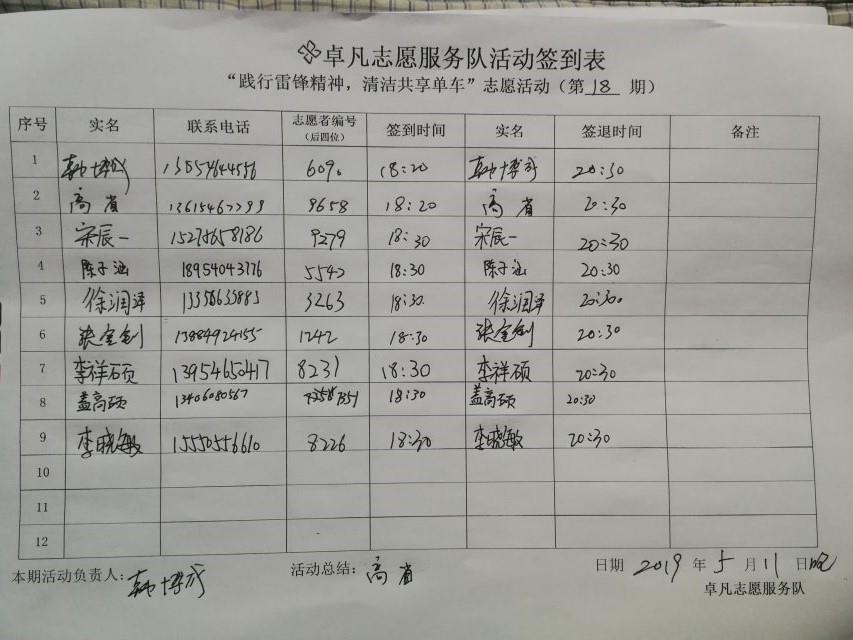 卓凡志愿服务队活动签到表
“践行雷锋精神，清洁共享单车”志愿活动（第 18 期）
序号 实名 联系电话 志愿者编号（后四位） 签到时间 实名 签退时间 备注
1 韩博成 609 18:20 韩博成 20:30
2 高省 13615467299 9658 18:20 高省 20:30
3 宋辰一 15275658186 9279 18:30 宋辰一 20:30
4 陈子涵 18954043776 5542 18:30 陈子涵 20:30
5 徐润泽 13356635883 3263 18:30 徐润泽 20:30
6 13884924155 1242 18:30 20:30
7 李祥硕 13954650417 8231 18:30 李祥硕 20:30
8 盖高硕 13406080567 18:30 盖高硕 20:30
9 李晓敏 15550556610 8226 18:30 李晓敏 20:30
10
11
12
本期活动负责人：韩博成 活动总结：高省 日期 2019 年 5 月 11 日晚
卓凡志愿服务队